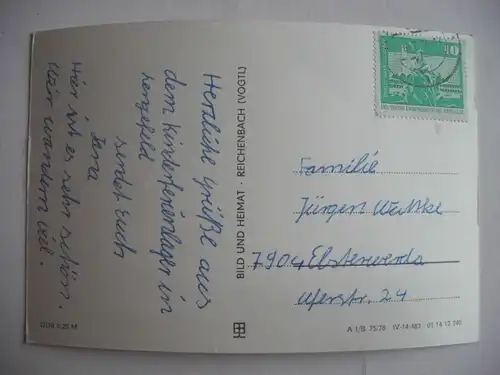 Herzliche Grüße aus
dem Kinderferienlager in
Lengefeld
sendet Euch
Jana
Hier ist es sehr schön.
Wir wandern viel.
BILD UND HEIMAT · REICHENBACH (VOGTL)
10
Familie
Jürgen
7904 Elsterwerda
Uferstr. 24
A 1/B 75/78 IV-14-483 01 14 12 240